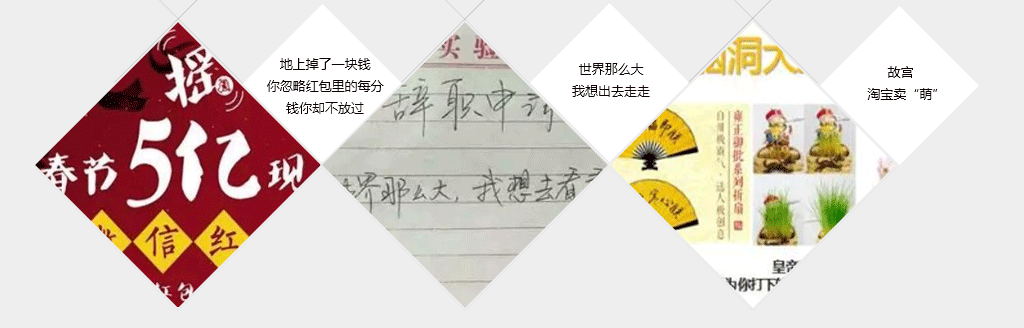 摇
春节5亿现
信红
红包
地上掉了一块钱
你忽略红包里的每分
钱你却不放过
实验
辞职申请
世界那么大，我想去看看
世界那么大
我想出去走走
洞大
雍正御批系列折扇
自用极霸气，送人极创意
皇帝
为你打下
故宫
淘宝卖“萌”